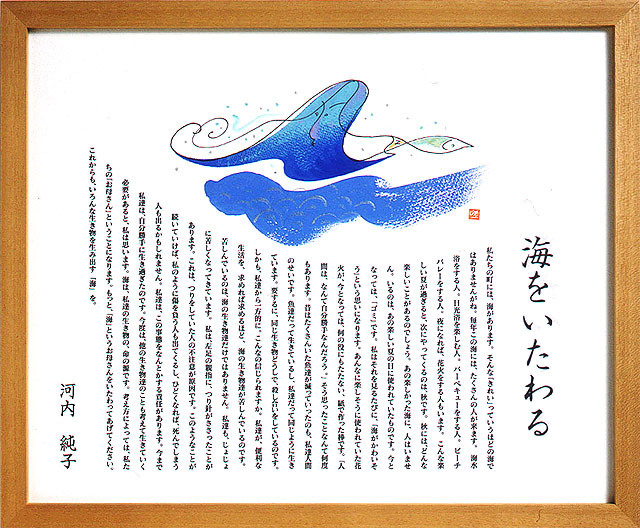 海をいたわる
私たちの町には、海があります。そんなに“きれい”っていうほどの海で
はありませんがね。毎年この海には、たくさんの人が来ます。海水
浴をする人、日光浴を楽しむ人。バーベキューをする人。ビーチ
バレーをする人。夜になれば、花火をする人もいます。こんな楽
しい夏が過ぎると、次にやってくるのは、秋です。秋には、どんな
楽しいことがあるのでしょう。あの楽しかった海に、人はいませ
ん。いるのは、あの楽しい夏の日に使われていたものです。今と
なっては、「ゴミ」です。私はそれを見るたびに、「海がかわいそ
う」という思いになります。あんなに楽しそうに使われていた花
火が、今となっては、何の役にもたたない、紙で作った棒です。「人
間は、なんて自分勝手なんだろう。」そう思ったことなんて何度
もあります。昔はたくさんいた魚達が減っていったのも、私達人間
のせいです。魚達だって生きているし、私達だって同じように生き
ています。要するに、同じ生き物どうしで、殺し合いをしているのです。
しかも、私達から一方的に。こんなの信じられますか。私達が、便利な
生活を、求めれば求めるほど、海の生き物達が苦しんでいるのです。
苦しんでいるのは、海の生き物達だけではありません。私達も、じょじょ
に苦しくなってきています。私は、左足の親指に、つり針がささったことが
あります。これは、つりをしていた人の不注意が原因です。このようなことが
続いていけば、私のように傷を負う人も出てくるし、ひどくなれば、死んでしまう
人も出るかもしれません。私達は、この事態をなんとかする責任があります。今まで
私達は、自分勝手に生き過ぎたのです。今度は、他の生き物達のことも考えて生きていく
必要があると、私は思います。海は、私達の生き物の、命の源です。考え方によっては、私た
ちの「お母さん」ということになります。もっと「海」というお母さんをいたわってあげてください。
これからも、いろんな生き物を生み出す「海」を。
河内 純子